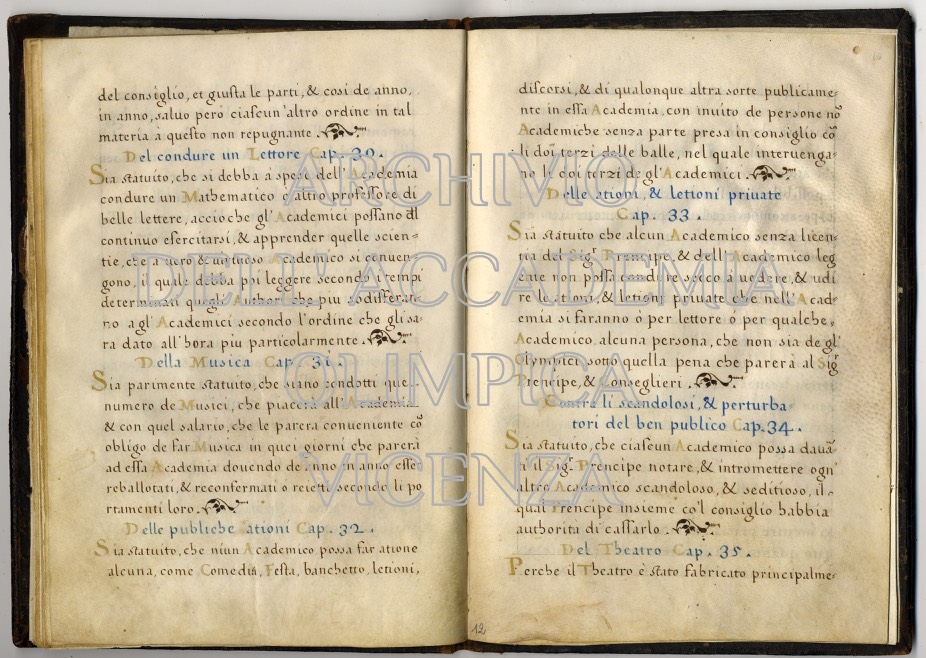 del consiglio, et giusta le parti, & cosi de anno,
in anno, saluo però ciascun'altro ordine in tal
materia à questo non repugnante.
Del condure un Lettore Cap. 30.
Sia statuito, che si debba à spese dell'Academia
condure un Mathematico o altro professore di
belle lettere, acciò che gl'Academici possano dl
continuo esercitarsi, & apprender quelle scien-
tie, che à uero & uirtuoso Academico si conuen-
gono, il quale debba poi leggere secondo i tempi
determinati quegli Authori che più sodisferan-
no a gl'Academici secondo l'ordine che gli sa-
rà dato all'hora più particolarmente.
Della Musica Cap. 31.
Sia parimente statuito, che siano condotti quel
numero de Musici, che piacerà all'Academia
& con quel salario, che le parerà conueniente cõ
obligo de far Musica in quei giorni che parerà
ad essa Academia douendo de anno in anno esse
re ballotati, & reconfermati o reietti secondo li po
rtamenti loro.
Delle publiche ationi Cap. 32.
Sia statuito, che niun Academico possa far atione
alcuna, come Comedia, Festa, banchetto, letioni,
discorsi, & di qualonque altra sorte publicame-
nte in essa Academia, con inuito de persone nõ
Academiche senza parte presa in consiglio cõ
li doi terzi delle balle, nel quale interuenga-
no li doi terzi de gl'Academici.
Delle ationi, & letioni priuate
Cap. 33.
Sia statuito che alcun Academico senza licen-
tia del Sigr Prencipe, & dell'Academico leg
ente non possa condure seco à uedere, & udi
re le ationi, & letioni priuate che nell'Acad-
emia si faranno ò per lettore ò per qualche
Academico alcuna persona, che non sia de gl'
Olympici sotto quella pena che parerà al Sigr
Prencipe, & Conseglieri.
Contra li scandolosi, & perturba-
tori del ben publico Cap. 34.
Sia statuito, che ciascun Academico possa dauã
ti il Sigr Prencipe notare, & intromettere ogn'
altro Academico scandoloso, & seditioso, il
qual Prencipe insieme co'l consiglio habbia
authorità di cassarlo.
Del Theatro Cap. 35.
Perche il Theatro è stato fabricato principalme-
12
ARCHIVIO
DELL'ACCADEMIA
OLIMPICA
VICENZA